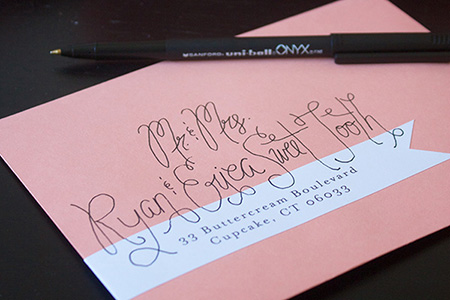 SANFORD. uni-ball ONYX
Mr. & Mrs.
Ryan & Erica Sweet Tooth
33 Buttercream Boulevard
Cupcake, CT 06033